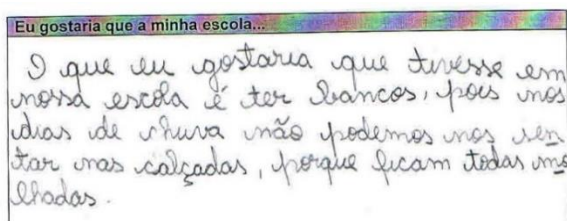 Eu gostaria que a minha escola...
O que eu gostaria que tivesse em
nossa escola é ter bancos, pois nos
dias de chuva não podemos nos sen
tar nas calçadas, porque ficam todas mo
lhadas.